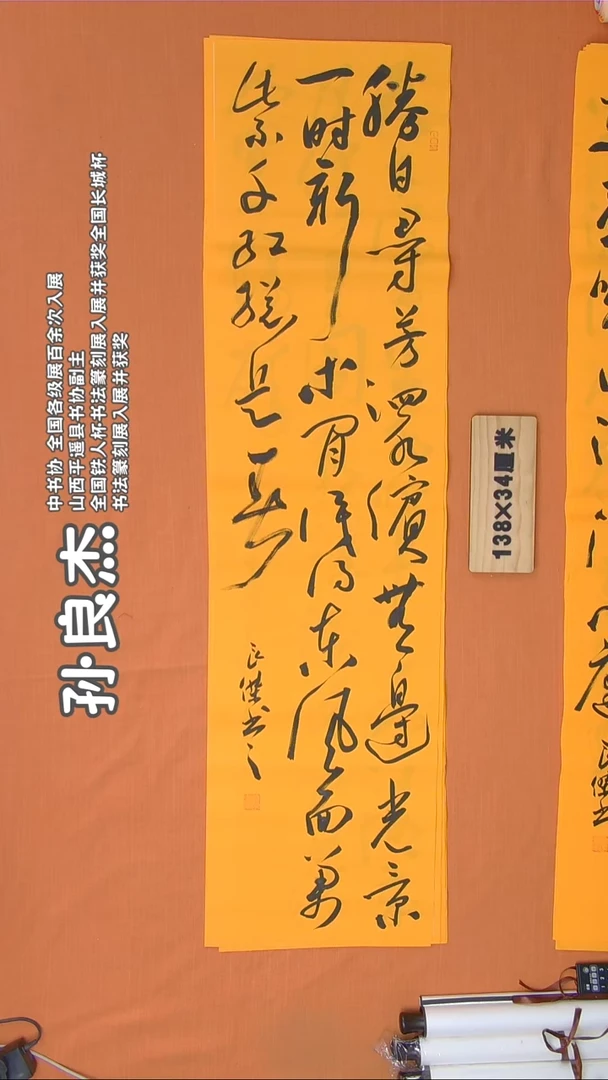 勝日尋芳泗水濱無邊光景
一时新等閒識得東風面萬
紫千紅總是春
良傑书之
138×34厘米
孙良杰
中书协 全国各级展百余次入展
山西平遥县书协副主
全国铁人杯书法篆刻展入展并获奖全国长城杯
书法篆刻展入展并获奖
良傑书